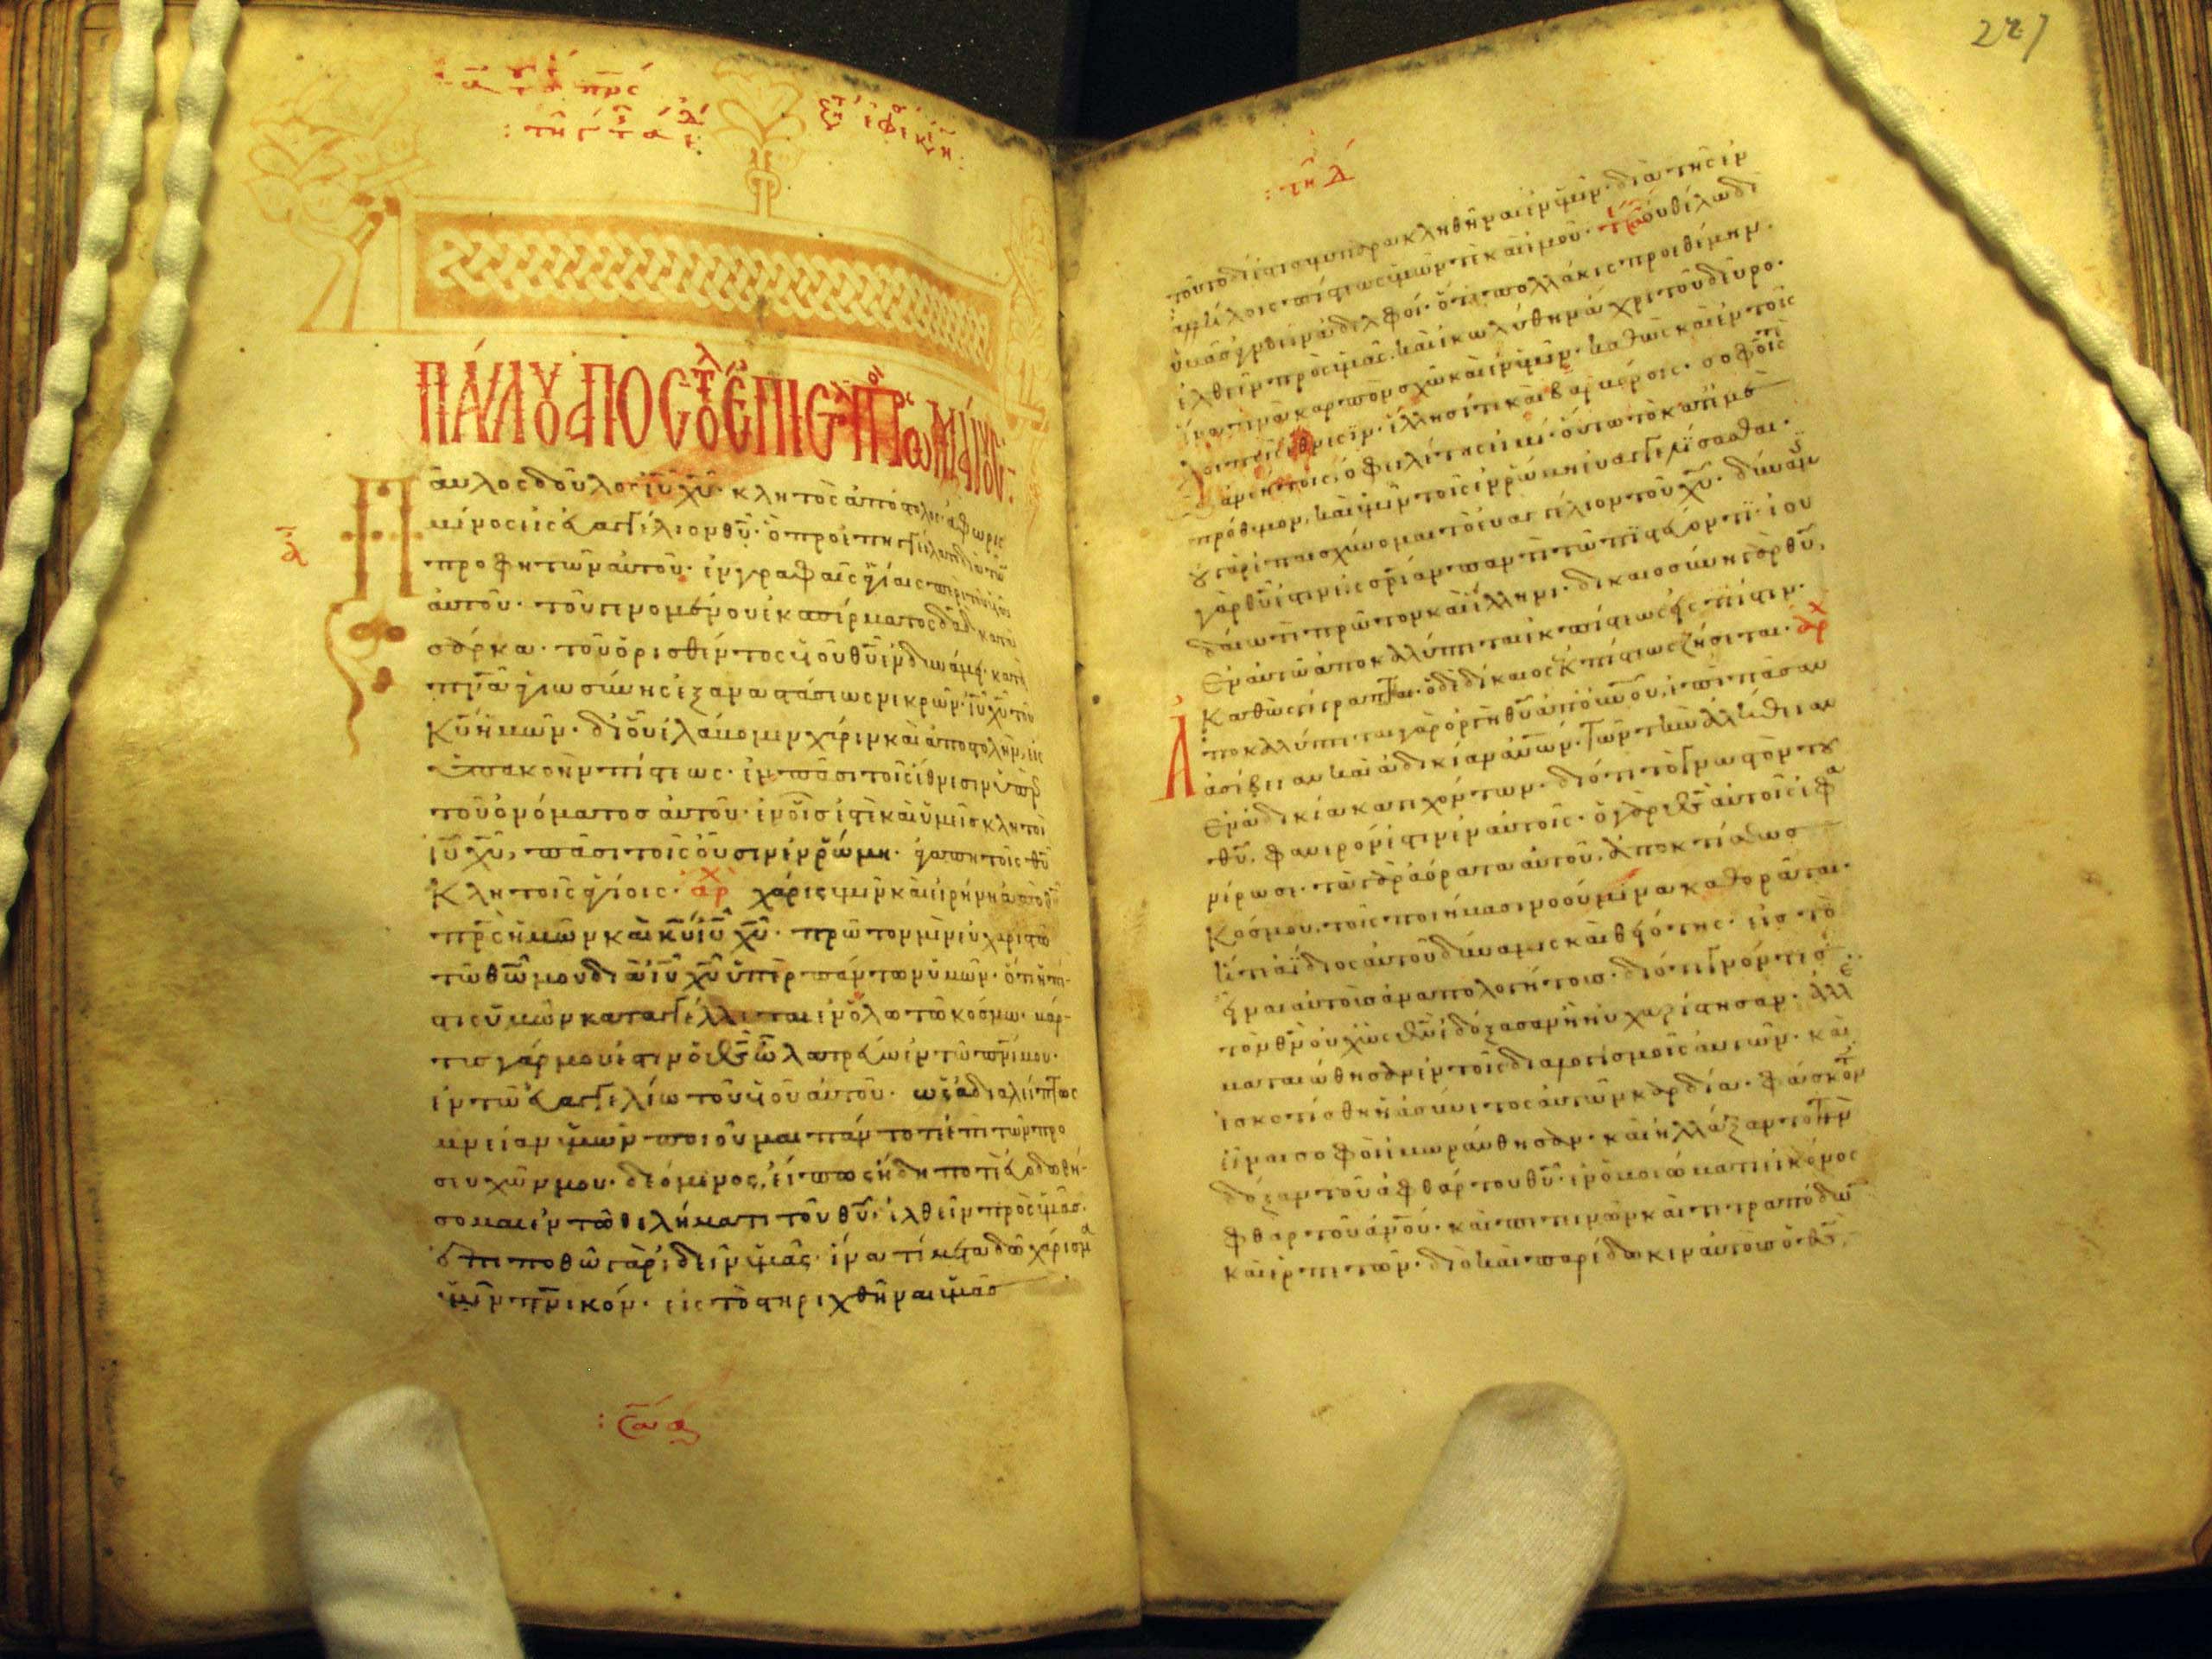 ΠΑΥΛΟΥ ΑΠΟΣΤΟΛΟΥ ΕΠΙΣ ΠΡ ΡΩΜΑΙΟΥΣ
Παῦλος δοῦλος ιυ χυ· κλητὸς ἀπόστολος, ἀφωρισ
μένος εἰς εὐαγγέλιον θυ· ὃ προεπηγγείλατο διὰ τῶν
προφητῶν αὐτοῦ· ἐν γραφαῖς ἁγίαις περὶ τοῦ υἱοῦ
αὐτοῦ· τοῦ γενομένου ἐκ σπέρματος δαδ κατὰ
σάρκα· τοῦ ὁρισθέντος υἱοῦ θυ ἐν δυνάμει· κατὰ
πνα ἁγιωσύνης ἐξ αναστάσεως νεκρῶν· ιυ χυ τοῦ
κυ ἡμῶν· δι οὗ ἐλάβομεν χάριν καὶ ἀποστολὴν, εἰς
ὑπακοὴν πίστεως· ἐν πᾶσι τοῖς ἔθνεσιν ὑπὲρ
τοῦ ὀνόματος αὐτοῦ· ἐν οἷς ἐστὲ καὶ ὑμεῖς κλητοὶ
ιυ χυ, πᾶσι τοῖς οὖσιν ἐν ρώμη· ἀγαπητοῖς θυ
κλητοῖς ἁγίοις· αρχ χάρις ὑμῖν καὶ εἰρήνη ἀπὸ θυ
πρς ἡμῶν καὶ κυ ιυ χυ· πρῶτον μὲν εὐχαριστῶ
τῶ θω μου διὰ ιυ χυ ὑπὲρ πάντων ὑμῶν· ὅτι ἡ πί-
στις ὑμῶν καταγγέλλεται ἐν ὅλω τῶ κόσμω· μάρ-
τυς γάρ μου ἐστιν ὁ θς ὧ λατρεύω ἐν τῶ πνι μου·
ἐν τῶ εὐαγγελίω τοῦ υἱοῦ αὐτοῦ· ὡς ἀδιαλείπτως
μνείαν ὑμῶν ποιοῦμαι πάντοτε ἐπὶ τῶν προ
σευχῶν μου· δεόμενος, εἴπως ἤδη ποτὲ εὐοδωθή-
σομαι ἐν τῶ θελήματι τοῦ θυ· ἐλθεῖν πρὸς ὑμᾶς.
ἐπιποθῶ γὰρ ἰδεῖν ὑμᾶς· ἵνα τί μεταδῶ χάρισμα
ὑμῖν πνικόν· εἰς τὸ στηριχθῆναι ὑμᾶς
227
τῆ λ
τοῦτο δέ ἐστι συμπαρακληθῆναι ἐν ὑμῖν· διὰ τῆς ἐν
ἀλλήλοις πίστεως ὑμῶν τὲ καὶ ἐμοῦ· οὐ θέλω δὲ
ὑμᾶς ἀγνοεῖν ἀδελφοί· ὅτι πολλάκις προεθέμην.
ἐλθεῖν πρὸς ὑμᾶς, καὶ ἐκωλύθην ἄχρι τοῦ δεῦρο·
ἵνα τινὰ καρπὸν σχῶ καὶ ἐν ὑμῖν· καθὼς καὶ ἐν τοῖς
λοιποῖς ἔθνεσϊν· ἕλλησί τε καὶ βαρβάροις· σοφοῖς
τὲ καὶ ἀνοήτοις, ὀφειλέτης εἰμί· οὕτω τὸ κατ ἐμὲ
πρόθυμον, καὶ ὑμῖν τοῖς ἐν ρώμη εὐαγγελίσασθαι·
οὐ γὰρ ἐπαισχύνομαι τὸ εὐαγγέλιον τοῦ χυ· δύναμις
γὰρ θυ ἐστιν εἰς σρίαν παντὶ τῶ πιστεύοντι· ἰου
δαίω τὲ πρῶτον καὶ ἕλληνι· δικαιοσύνη γὰρ θυ,
ἐν αὐτῶ ἀποκαλύπτεται ἐκ πίστεως εἰς πίστιν.
Καθὼς γέγραπται· ὁ δὲ δίκαιος ἐκ πίστεως ζήσεται· αρχ
Ἀποκαλύπτεται γὰρ ὀργὴ θυ ἀπ οὐνου, ἐπὶ πᾶσαν
ἀσέβειαν καὶ ἀδικίαν ἀνων· τῶν τὴν ἀλήθειαν
ἐν ἀδικία κατεχόντων· διότι τὸ γνωστὸν τοῦ
θυ, φανερόν ἐστιν ἐν αὐτοῖς· ὁ γὰρ θς αὐτοῖς ἐφα
νέρωσι· τὰ γὰρ ἀόρατα αὐτοῦ, ἀπο κτίσεως
κόσμου, τοῖς ποιήμασι νοούμενα καθορᾶται·
ἥ τε ἀΐδιος αὐτοῦ δύναμις καὶ θειότης· εἰς τὸ
εἶναι αὐτοὺς ἀναπολογήτους· διότι γνόντες
τὸν θν οὐχ ὡς θν ἐδόξασαν ἢ εὐχαρίστησαν· ἀλλ
ἐματαιώθησαν ἐν τοῖς διαλογισμοῖς αὐτῶν· καὶ
ἐσκοτίσθη ἡ ἀσύνετος αὐτῶν καρδία· φάσκοντες
εἶναι σοφοὶ ἐμωράνθησαν· καὶ ἤλλαξαν τὴν
δόξαν τοῦ ἀφθάρτου θυ· ἐν ὁμοιώματι εἰκόνος
φθαρτοῦ ἀνου· καὶ πετεινῶν καὶ τετραπόδων
καὶ ἑρπετῶν· διὸ καὶ παρέδωκεν αὐτοὺς ὁ θς,